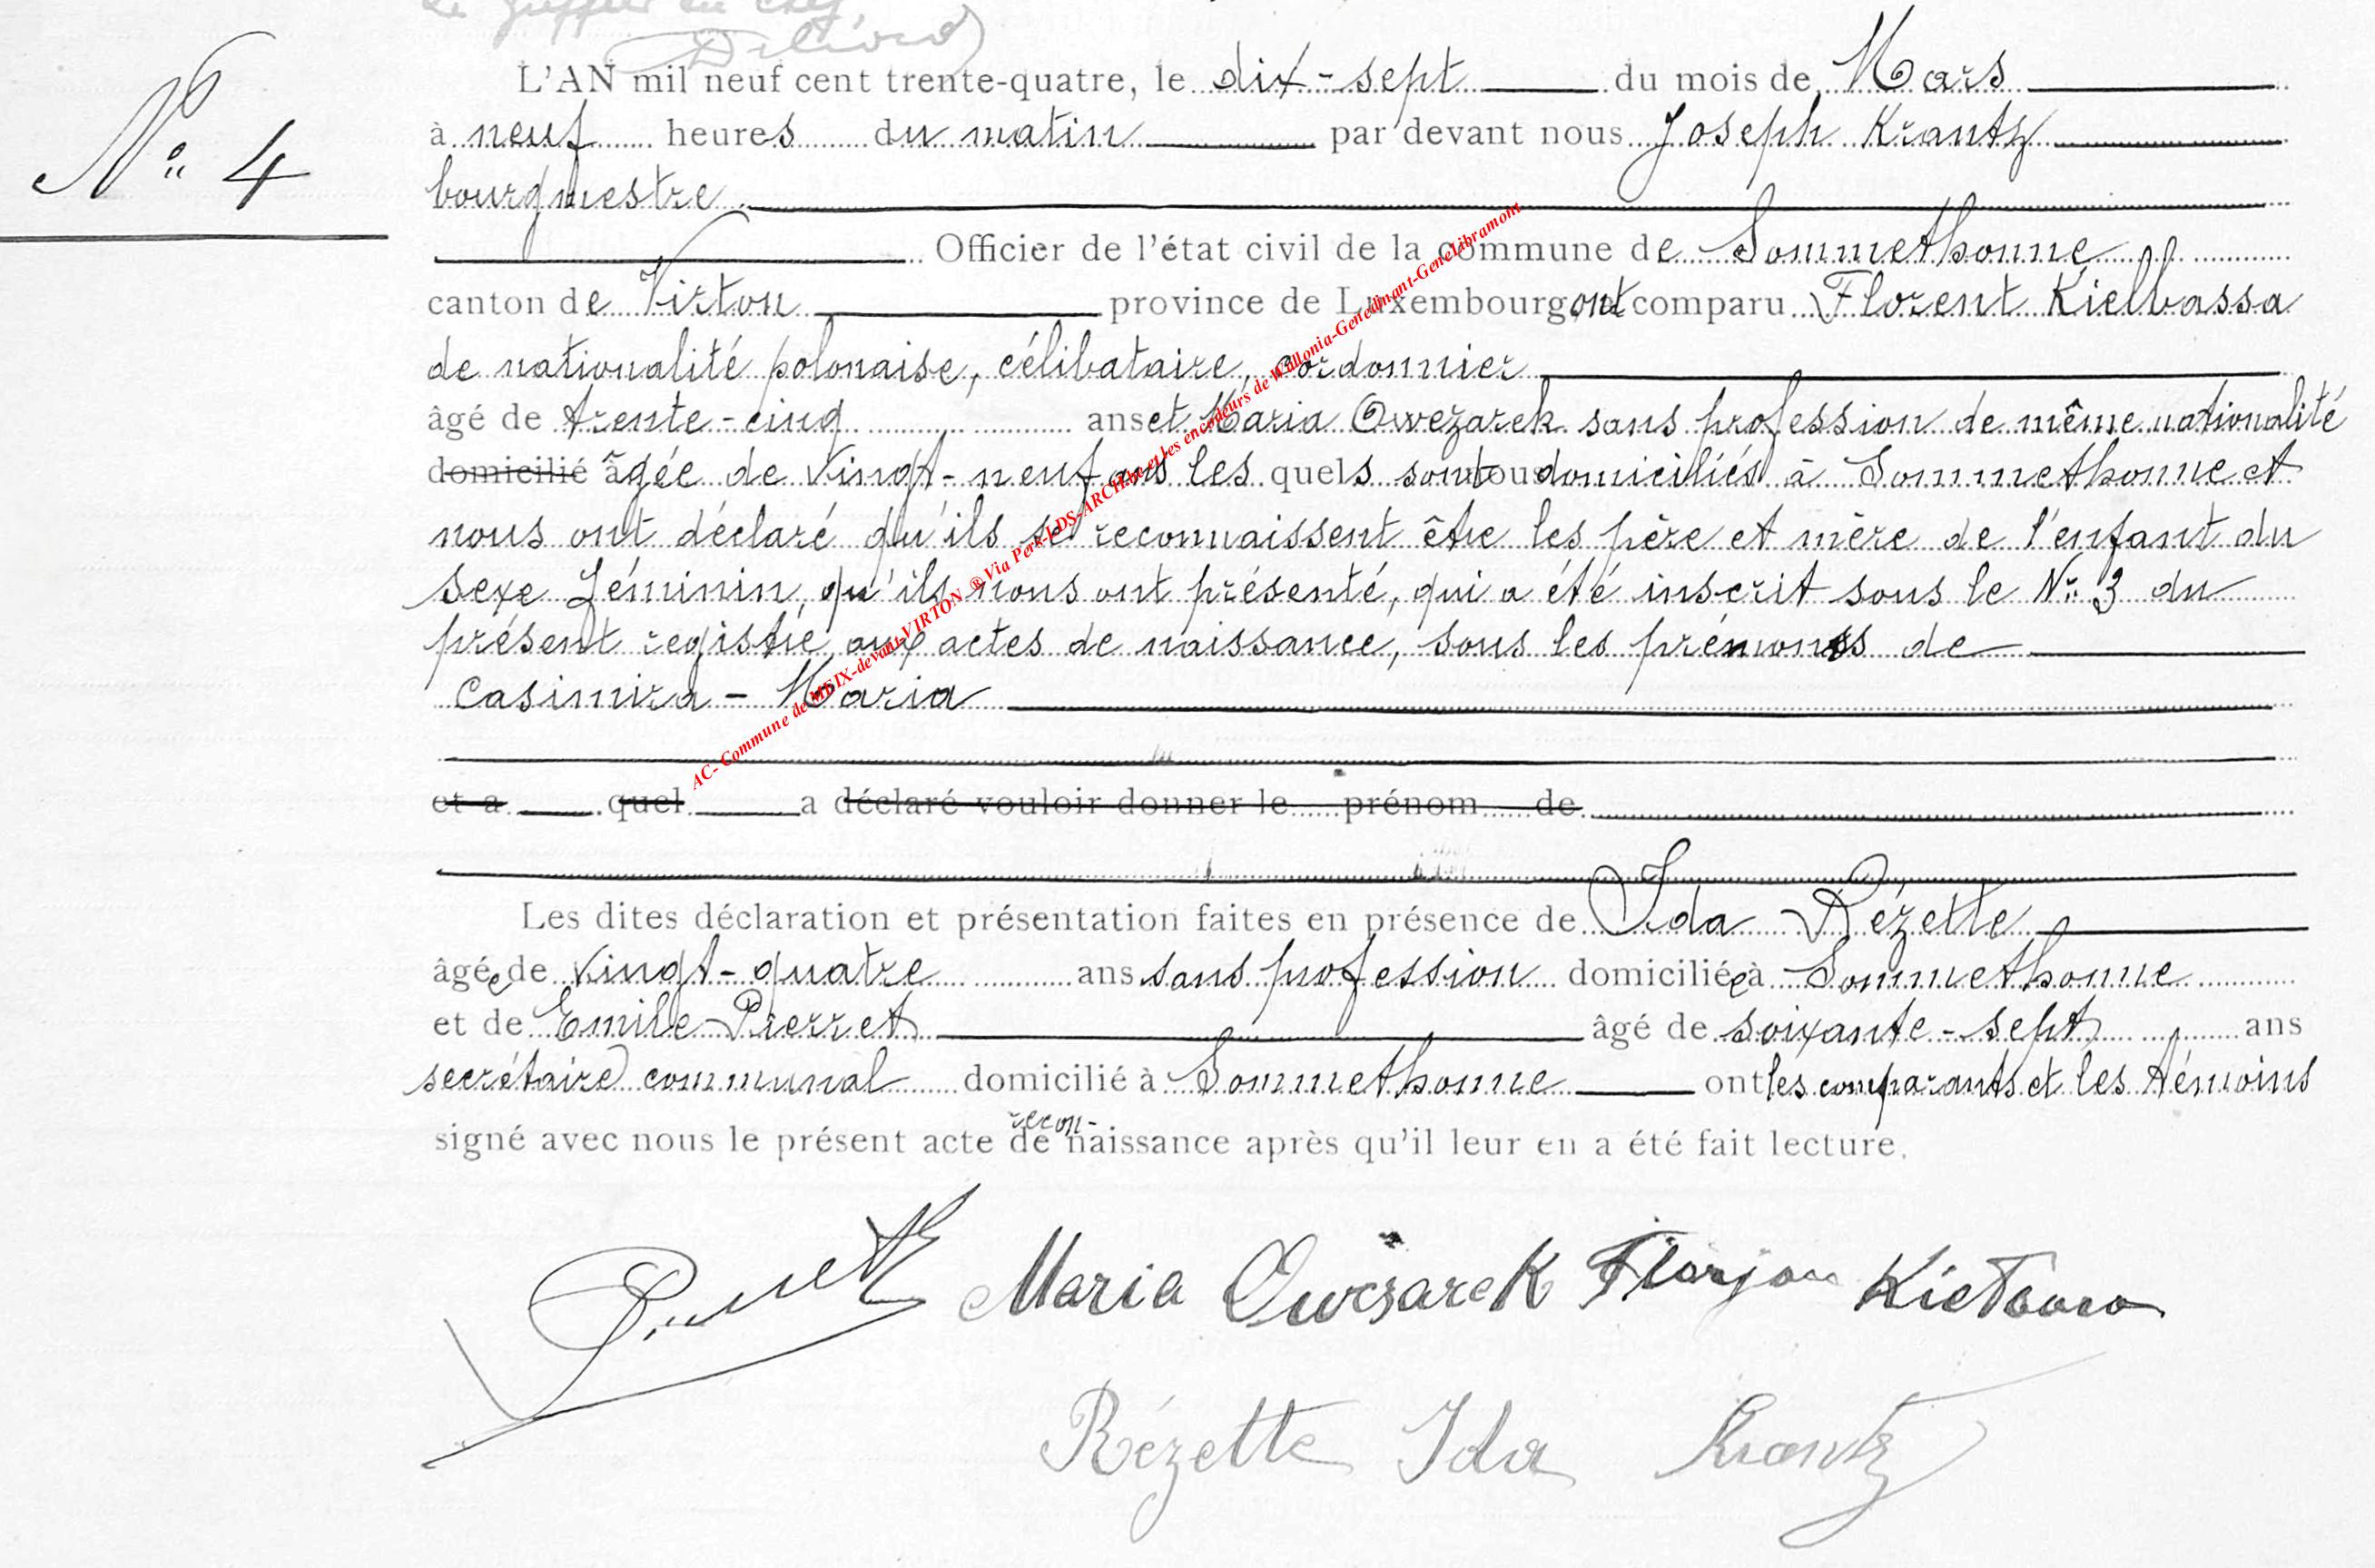 Le greffier en chef
N° 4
L'AN mil neuf cent trente-quatre, le dix-sept du mois de Mars
à neuf heures du matin par devant nous Joseph Krantz
bourgmestre
Officier de l'état civil de la commune de Sommethonne
canton de Virton province de Luxembourg ont comparu Florent Kielbassa
de nationalité polonaise, célibataire, cordonnier
âgé de trente-cinq ans et Maria Owezarek sans profession de même nationalité
domicilié âgée de vingt-neuf ans les quels sont tous domiciliés à Sommethonne et
nous ont déclaré qu'ils se reconnaissent être les père et mère de l'enfant du
sexe féminin, qu'ils nous ont présenté, qui a été inscrit sous le N° 3 du
présent registre aux actes de naissance, sous les prénoms de
Casimira - Maria
et a quel a déclaré vouloir donner le prénom de
Les dites déclaration et présentation faites en présence de Ida Rézette
âgée de vingt-quatre ans sans profession domiciliée à Sommethonne
et de Emile Pierret âgé de soixante-sept ans
secrétaire communal domicilié à Sommethonne ont les comparants et les témoins
recon-
signé avec nous le présent acte de naissance après qu'il leur en a été fait lecture.
Maria Owczarek Florjan
Rézette Ida Krantz
AC- Commune de MEIX-devant-VIRTON ® Via Pers-LDS-ARCH.be et les encodeurs de Wallonia-Genedinant-Genelibramont